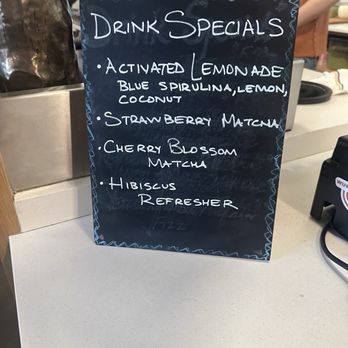 DRINK SPECIALS
• ACTIVATED LEMONADE
BLUE SPIRULINA, LEMON,
COCONUT
• STRAWBERRY MATCHA
• CHERRY BLOSSOM
MATCHA
• HIBISCUS
REFRESHER